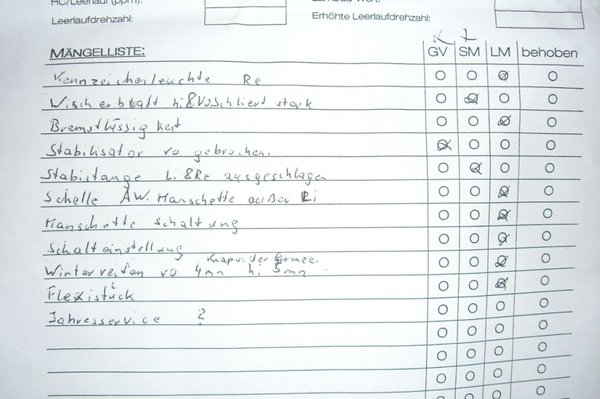 HC/Leerlauf (ppm):
Leerlaufdrehzahl:
Erhöhte Leerlaufdrehzahl:
MÄNGELLISTE: GV SM LM behoben
Kennzeichenleuchte Re
Wischerblatt hi & vo schliert stark
Bremsflüssigkeit
Stabilisator vo gebrochen.
Stabistange Li & Re ausgeschlagen
Schelle AW. Manschette außen Li
Manschette Schaltung
Schalteinstellung
Winterreifen vo 4mm hi 5mm knapp der Grenze
Flexistück
Jahresservice ?